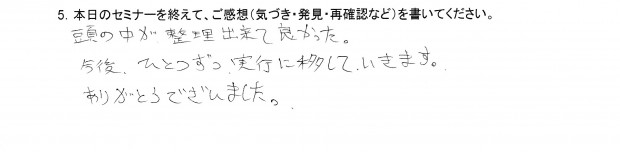 5. 本日のセミナーを終えて、ご感想(気づき・発見・再確認など)を書いてください。
頭の中が整理出来て良かった。
今後、ひとつずつ実行に移して、いきます。
ありがとうございました。